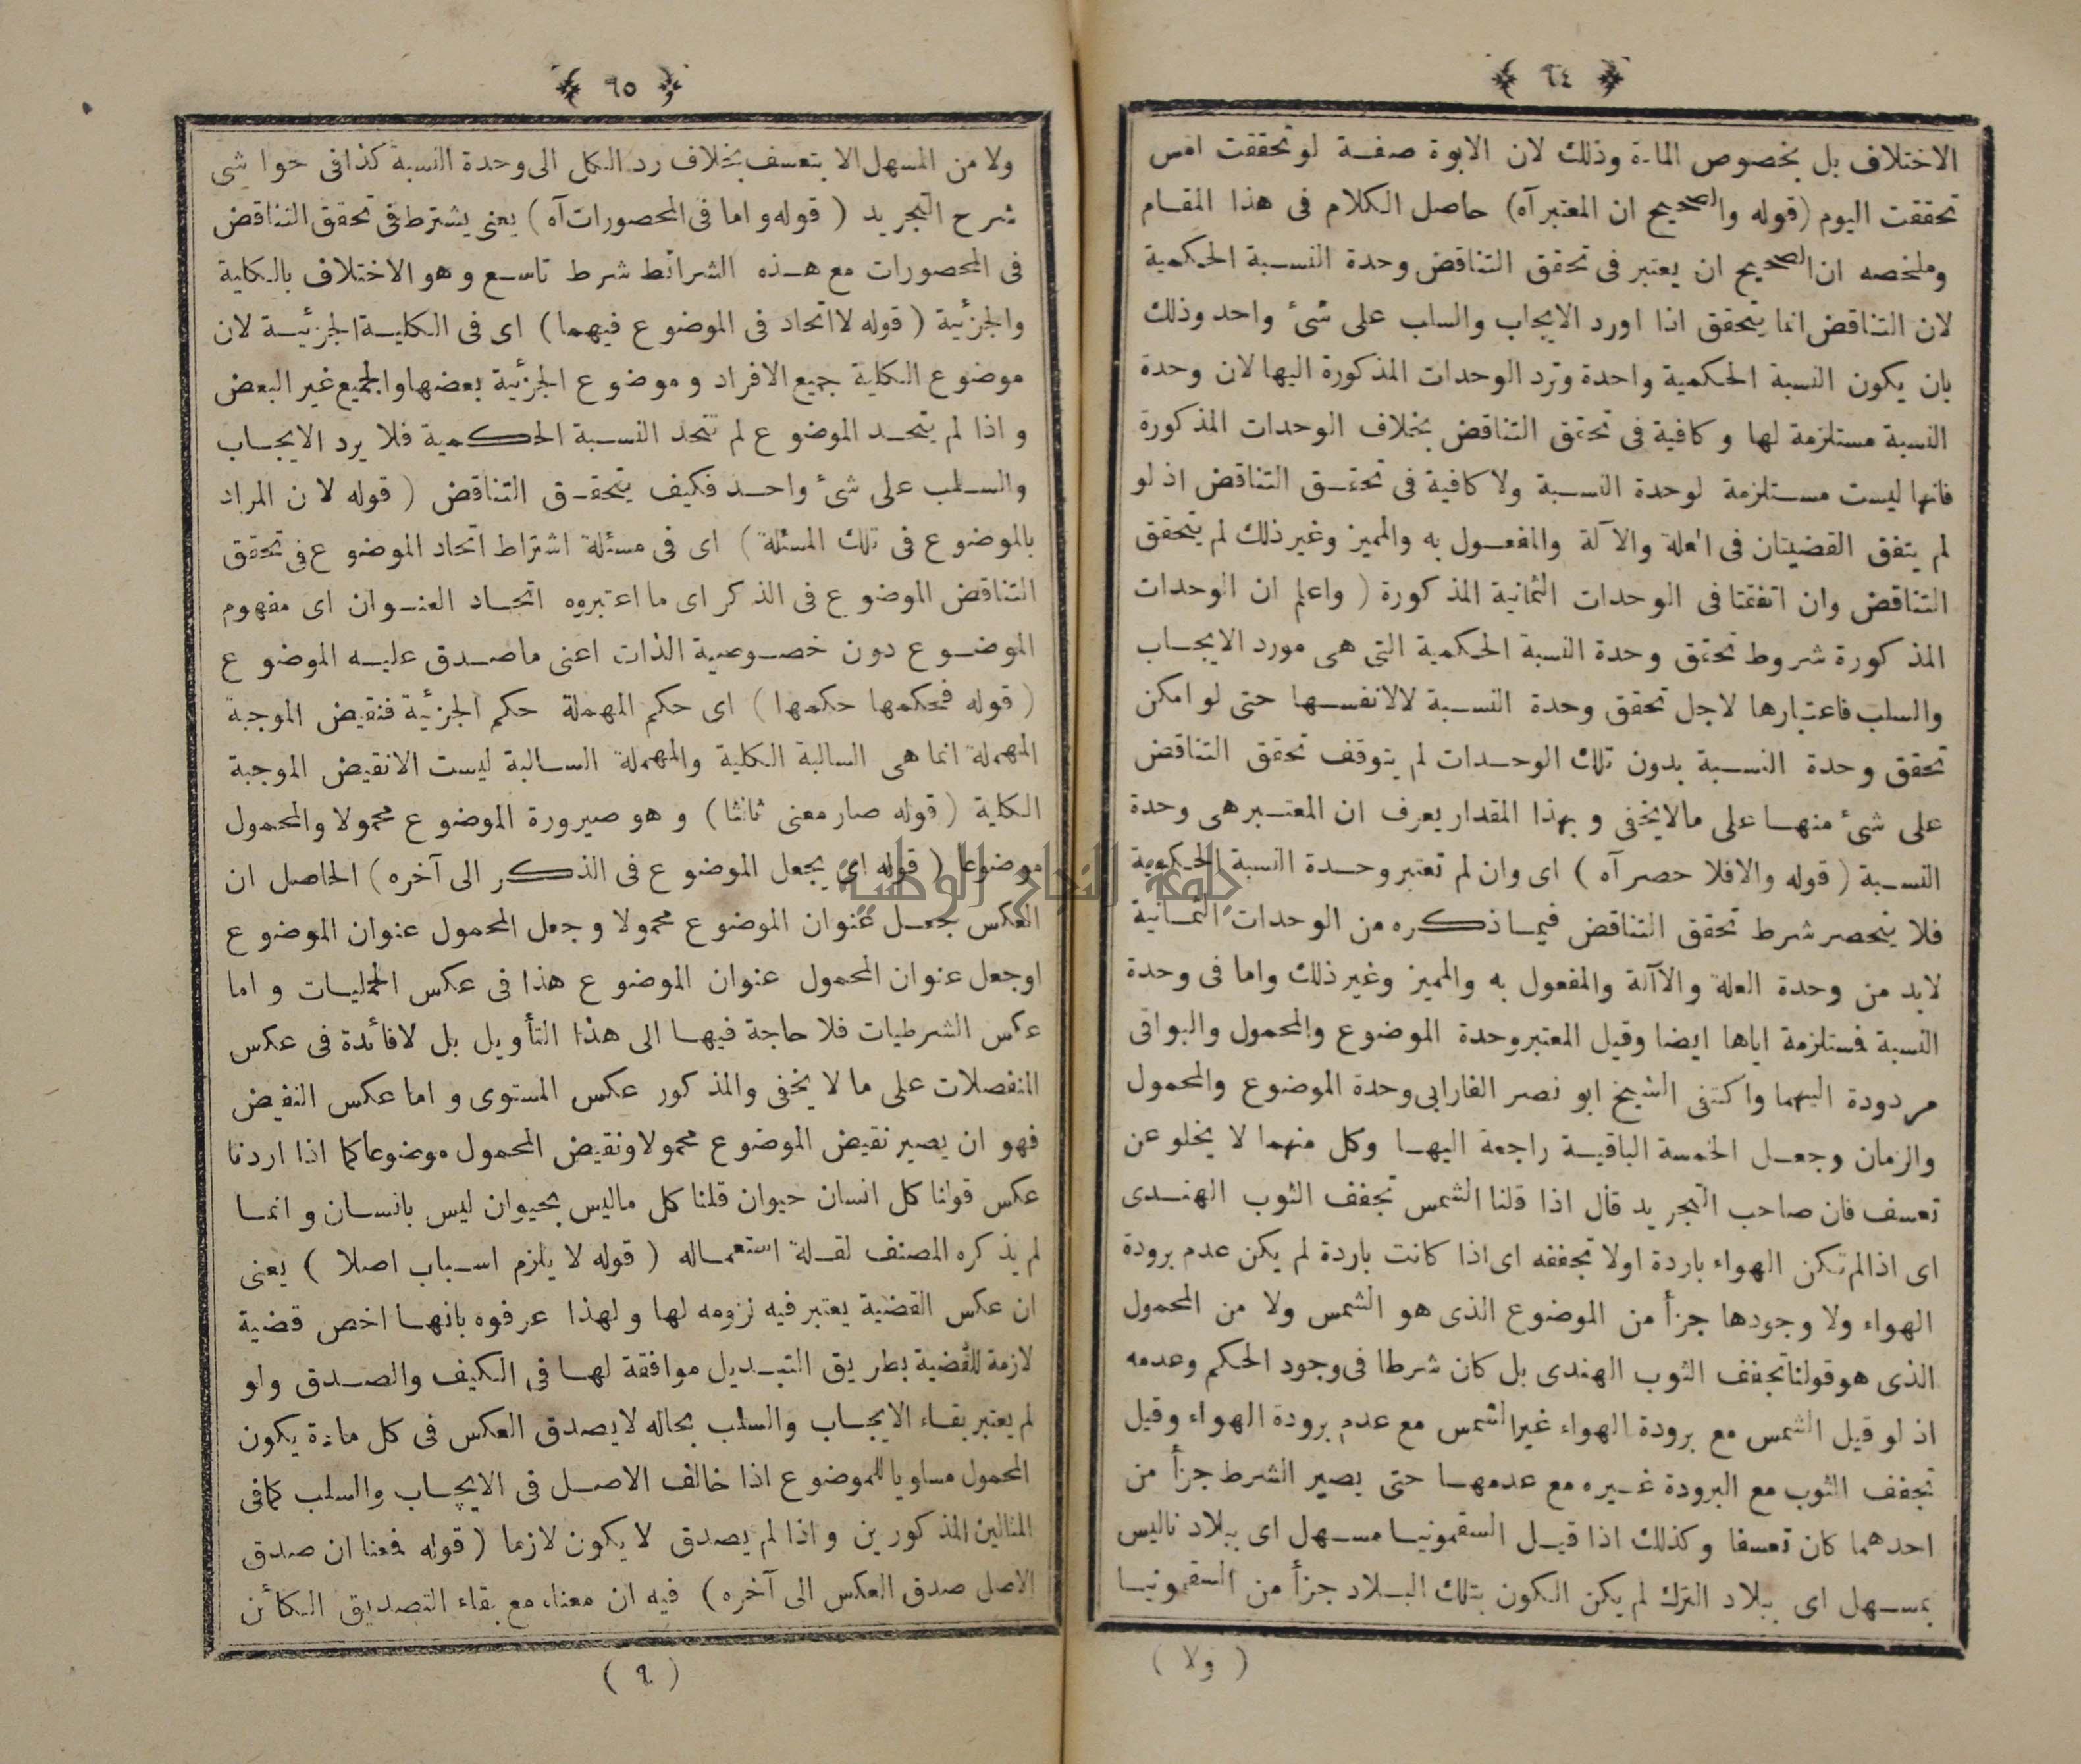 ﴿ ٦٤ ﴾
الاختلاف بل بخصوص المادة وذلك لان الابوة صفة لو تحققت امس
تحققت اليوم (قوله والصحيح ان المعتبر آه) حاصل الكلام فى هذا المقام
وملخصه ان الصحيح ان يعتبر فى تحقق التناقض وحدة النسبة الحكمية
لان التناقض انما يتحقق اذا اورد الايجاب والسلب على شئ واحد وذلك
بان يكون النسبة الحكمية واحدة وترد الوحدات المذكورة اليها لان وحدة
النسبة مستلزمة لها وكافية فى تحقق التناقض بخلاف الوحدات المذكورة
فانها ليست مستلزمة لوحدة النسبة ولا كافية فى تحقق التناقض اذ لو
لم يتفق القضيتان فى العلة والآلة والمفعول به والمميز وغير ذلك لم يتحقق
التناقض وان اتفقتا فى الوحدات الثمانية المذكورة ( واعلم ان الوحدات
المذكورة شروط تحقق وحدة النسبة الحكمية التى هى مورد الايجاب
والسلب فاعتبارها لاجل تحقق وحدة النسبة لا لانفسها حتى لو امكن
تحقق وحدة النسبة بدون تلك الوحدات لم يتوقف تحقق التناقض
على شئ منها على مالايخفى وبهذا المقدار يعرف ان المعتبر هى وحدة
النسبة ( قوله والا فلا حصر آه ) اى وان لم تعتبر وحدة النسبة الحكمية
فلا ينحصر شرط تحقق التناقض فيما ذكره من الوحدات الثمانية
لابد من وحدة العلة والاآلة والمفعول به والمميز وغير ذلك واما فى وحدة
النسبة فستلزمة اياها ايضا وقيل المعتبر وحدة الموضوع والمحمول والبواقى
مردودة اليهما واكتفى الشيخ ابو نصر الفارابى وحدة الموضوع والمحمول
والزمان وجعل الخمسة الباقية راجعة اليها وكل منهما لا يخلو عن
تعسف فان صاحب التجريد قال اذا قلنا الشمس تجفف الثوب الهندى
اى اذالم تكن الهواء باردة اولا تجففه اى اذا كانت باردة لم يكن عدم برودة
الهواء ولا وجودها جزأ من الموضوع الذى هو الشمس ولا من المحمول
الذى هو قولنا تجفف الثوب الهندى بل كان شرطا فى وجود الحكم وعدمه
اذ لو قيل الشمس مع برودة الهواء غير الشمس مع عدم برودة الهواء وقيل
تجفف الثوب مع البرودة غيره مع عدمها حتى يصير الشرط جزأ من
احدهما كان تعسفا وكذلك اذا قيل السقمونيا مسهل اى ببلاد ناليس
بمسهل اى ببلاد الترك لم يكن الكون بتلك البلاد جزأ من السقمونيا
( ولا )
﴿ ٦٥ ﴾
ولا من المسهل الا بتعسف بخلاف رد الكل الى وحدة النسبة كذا فى حواشى
شرح التجريد ( قوله واما فى المحصورات آه ) يعنى يشترط فى تحقق التناقض
فى المحصورات مع هذه الشرائط شرط تاسع وهو الاختلاف بالكلية
والجزئية ( قوله لا اتحاد فى الموضوع فيهما ) اى فى الكلية الجزئية لان
موضوع الكلية جميع الافراد وموضوع الجزئية بعضها والجميع غير البعض
واذا لم يتحد الموضوع لم تتحد النسبة الحكمية فلا يرد الايجاب
والسلب على شئ واحد فكيف يتحقق التناقض ( قوله لان المراد
بالموضوع فى تلك المسئلة ) اى فى مسئلة اشتراط اتحاد الموضوع فى تحقق
التناقض الموضوع فى الذكر اى ما اعتبروه اتحاد العنوان اى مفهوم
الموضوع دون خصوصية الذات اعنى ماصدق عليه الموضوع
( قوله فحكمها حكمها ) اى حكم المهملة حكم الجزئية فنقيض الموجبة
المهملة انما هى السالبة الكلية والمهملة السالبة ليست الانقيض الموجبة
الكلية ( قوله صار معنى ثالثا ) وهو صيرورة الموضوع محمولا والمحمول
موضوعا ( قوله اى يجعل الموضوع فى الذكر الى آخره ) الحاصل ان
العكس بجعل عنوان الموضوع محمولا وجعل المحمول عنوان الموضوع
اوجعل عنوان المحمول عنوان الموضوع هذا فى عكس الحمليات واما
عكس الشرطيات فلا حاجة فيها الى هذا التأويل بل لافائدة فى عكس
المنفصلات على ما لا يخفى والمذكور عكس المستوى واما عكس النقيض
فهو ان يصير نقيض الموضوع محمولا ونقيض المحمول موضوعا كما اذا اردنا
عكس قولنا كل انسان حيوان قلنا كل ماليس بحيوان ليس بانسان وانما
لم يذكره المصنف لقلة استعماله ( قوله لا يلزم اسباب اصلا ) يعنى
ان عكس القضية يعتبر فيه لزومه لها ولهذا عرفوه بانها اخص قضية
لازمة للقضية بطريق التبديل موافقة لها فى الكيف والصدق ولو
لم يعتبر بقاء الايجاب والسلب بحاله لايصدق العكس فى كل مادة يكون
المحمول مساويا للموضوع اذا خالف الاصل فى الايجاب والسلب كمافى
المثالين المذكورين واذا لم يصدق لا يكون لازما ( قوله فمعنا ان صدق
الاصل صدق العكس الى آخره ) فيه ان معناه مع بقاء التصديق الكائن
( ٩ )
جامعة النجاح الوطنية